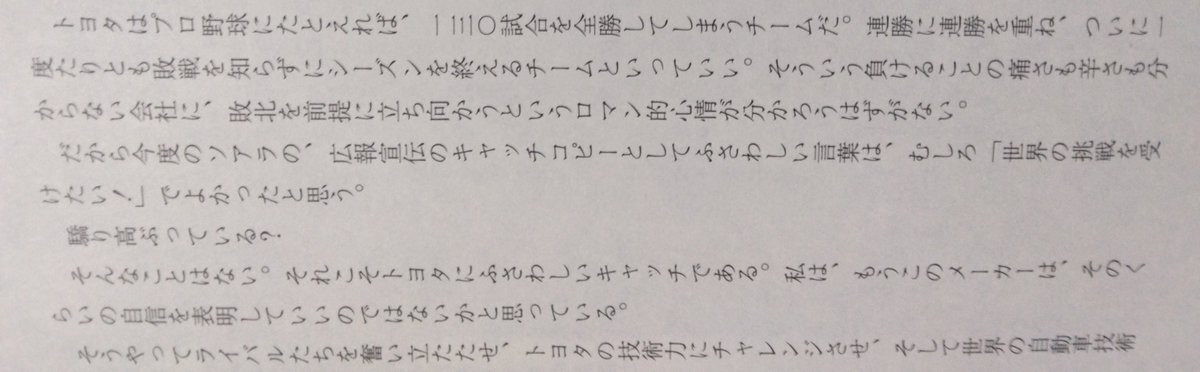 トヨタはプロ野球にたとえれば、一三〇試合を全勝してしまうチームだ。連勝に連勝を重ね、ついに一
度たりとも敗戦を知らずにシーズンを終えるチームといっていい。そういう負けることの痛さも辛さも分
からない会社に、敗北を前提に立ち向かうというロマン的心情が分かろうはずがない。
だから今度のソアラの、広報宣伝のキャッチコピーとしてふさわしい言葉は、むしろ「世界の挑戦を受
けたい！」でよかったと思う。
驕り高ぶっている？
そんなことはない。それこそトヨタにふさわしいキャッチである。私は、もうこのメーカーは、そのく
らいの自信を表明していいのではないかと思っている。
そうやってライバルたちを奮い立たせ、トヨタの技術力にチャレンジさせ、そして世界の自動車技術